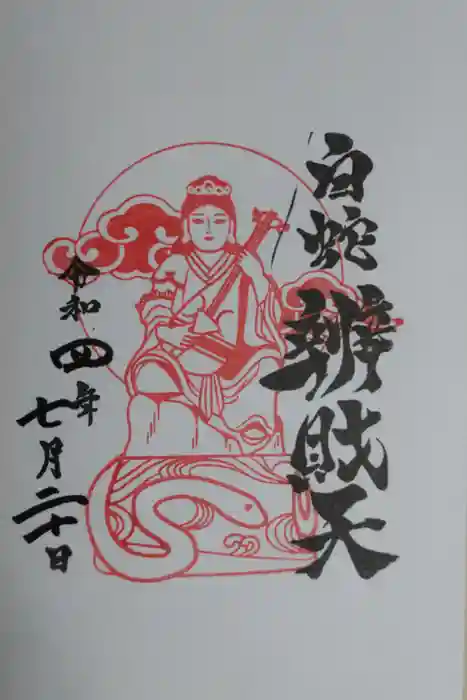 白蛇辨財天
令和四年七月二十日